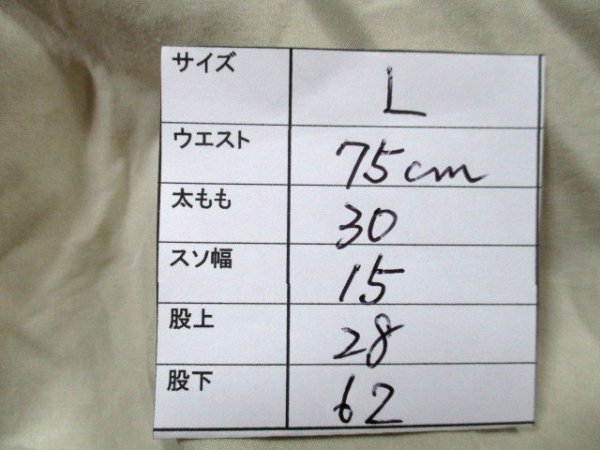 サイズ L
ウエスト 75cm
太もも 30
スソ幅 15
股上 28
股下 62